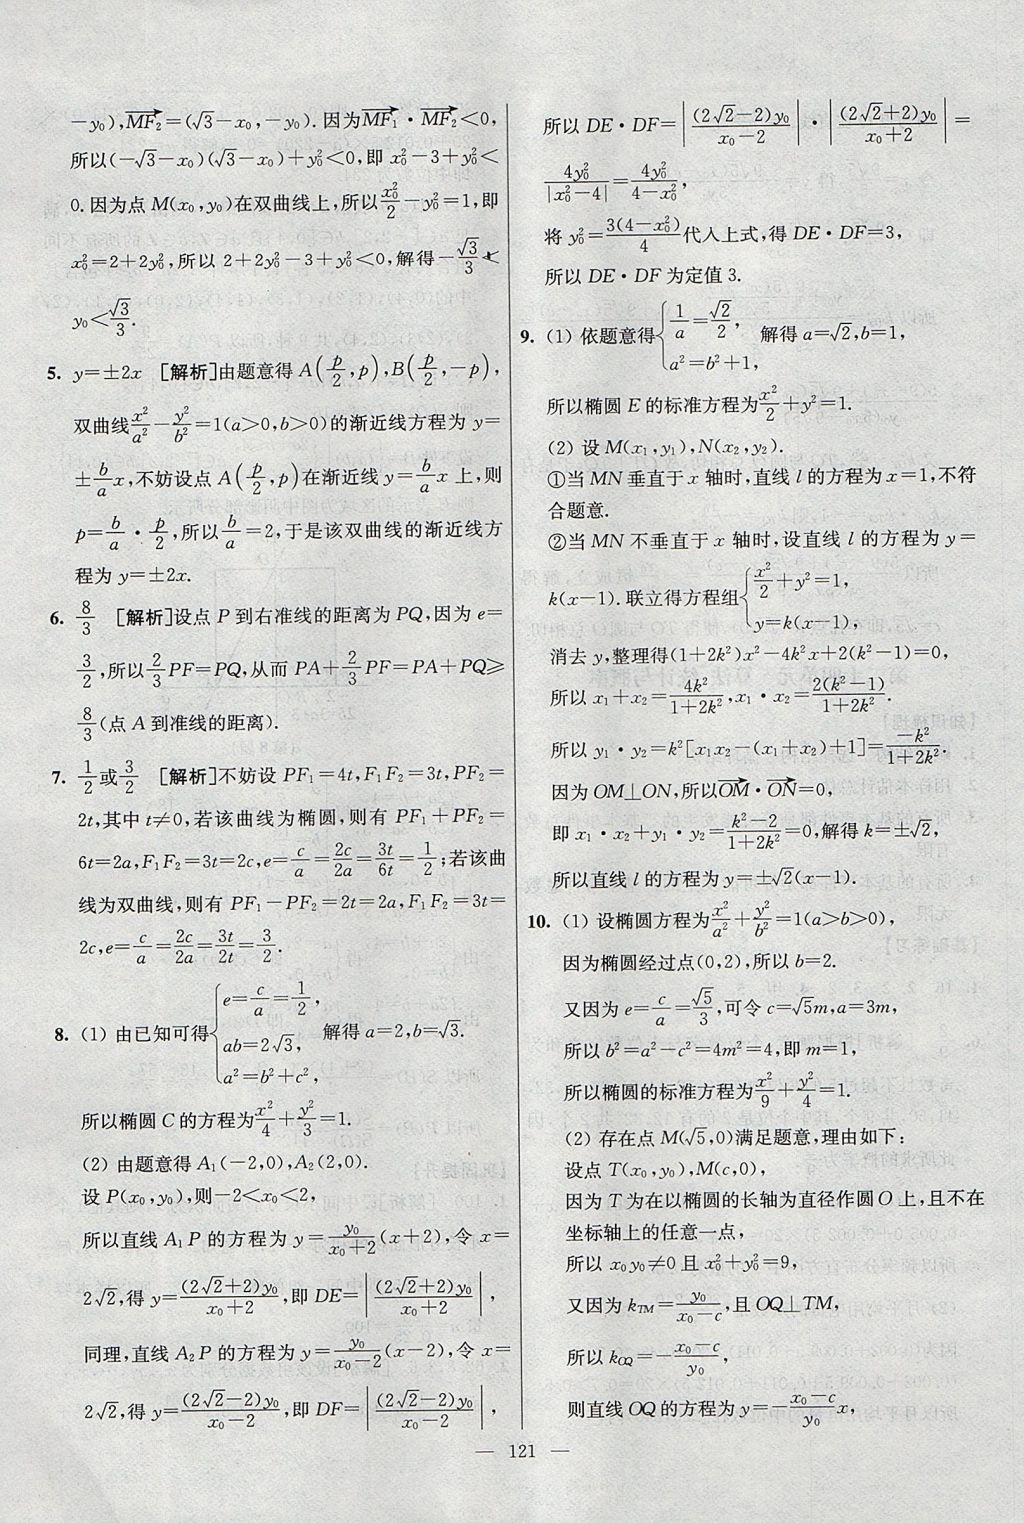 -y₀),MF₂=(√3-x₀,-y₀).因为MF₁·MF₂<0,
所以(-√3-x₀)(√3-x₀)+y₀²<0,即x₀²-3+y₀²<
0.因为点M(x₀,y₀)在双曲线上,所以x₀²/2-y₀²=1,即
x₀²=2+2y₀²,所以2+2y₀²-3+y₀²<0,解得-√3/3<
y₀<√3/3.
5. y=±2x [解析]由题意得A(p/2,p),B(p/2,-p),
双曲线x²/a²-y²/b²=1(a>0,b>0)的渐近线方程为y=
±b/a x,不妨设点A(p/2,p)在渐近线y=b/a x上,则
p=b/a·p/2,所以b/a=2,于是该双曲线的渐近线方
程为y=±2x.
6. 8/3 [解析]设点P到右准线的距离为PQ,因为e=
3/2,所以2/3PF=PQ,从而PA+2/3PF=PA+PQ≥
8/3(点A到准线的距离).
7. 1/2或3/2 [解析]不妨设PF₁=4t,F₁F₂=3t,PF₂=
2t,其中t≠0,若该曲线为椭圆,则有PF₁+PF₂=
6t=2a,F₁F₂=3t=2c,e=c/a=2c/2a=3t/6t=1/2;若该曲
线为双曲线,则有PF₁-PF₂=2t=2a,F₁F₂=3t=
2c,e=c/a=2c/2a=3t/2t=3/2.
8. (1) 由已知可得{e=c/a=1/2, ab=2√3, a²=b²+c², 解得a=2,b=√3.
所以椭圆C的方程为x²/4+y²/3=1.
(2) 由题意得A₁(-2,0),A₂(2,0).
设P(x₀,y₀),则-2<x₀<2,
所以直线A₁P的方程为y=y₀/(x₀+2)(x+2),令x=
2√2,得y=(2√2+2)y₀/(x₀+2),即DE=|(2√2+2)y₀/(x₀+2)|,
同理,直线A₂P的方程为y=y₀/(x₀-2)(x-2),令x=
2√2,得y=(2√2-2)y₀/(x₀-2),即DF=|(2√2-2)y₀/(x₀-2)|,
所以DE·DF=|(2√2-2)y₀/(x₀-2)|·|(2√2+2)y₀/(x₀+2)|=
4y₀²/|x₀²-4|=4y₀²/(4-x₀²),
将y₀²=3(4-x₀²)/4代入上式,得DE·DF=3,
所以DE·DF为定值3.
9. (1) 依题意得{1/a=√2/2, a²=b²+1, 解得a=√2,b=1,
所以椭圆E的标准方程为x²/2+y²=1.
(2) 设M(x₁,y₁),N(x₂,y₂).
①当MN垂直于x轴时,直线l的方程为x=1,不符
合题意.
②当MN不垂直于x轴时,设直线l的方程为y=
k(x-1).联立得方程组{x²/2+y²=1, y=k(x-1),
消去y,整理得(1+2k²)x²-4k²x+2(k²-1)=0.
所以x₁+x₂=4k²/(1+2k²),x₁·x₂=2(k²-1)/(1+2k²).
所以y₁·y₂=k²[x₁x₂-(x₁+x₂)+1]=-k²/(1+2k²).
因为OM⊥ON,所以OM·ON=0,
即x₁·x₂+y₁·y₂=(k²-2)/(1+2k²)=0,解得k=±√2,
所以直线l的方程为y=±√2(x-1).
10. (1) 设椭圆方程为x²/a²+y²/b²=1(a>b>0),
因为椭圆经过点(0,2),所以b=2.
又因为e=c/a=√5/3,可令c=√5m,a=3m,
所以b²=a²-c²=4m²=4,即m=1,
所以椭圆的标准方程为x²/9+y²/4=1.
(2) 存在点M(√5,0)满足题意,理由如下:
设点T(x₀,y₀),M(c,0),
因为T为在以椭圆的长轴为直径作圆O上,且不在
坐标轴上的任意一点,
所以x₀y₀≠0且x₀²+y₀²=9,
又因为kTM=y₀/(x₀-c),且OQ⊥TM,
所以kOQ=-(x₀-c)/y₀,
则直线OQ的方程为y=-(x₀-c)/y₀ x,
— 121 —